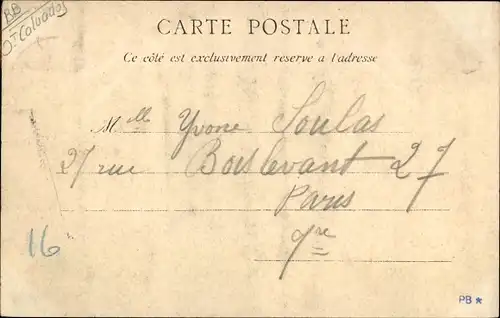 RB
DT Calvados
CARTE POSTALE
Ce côté est exclusivement reserve a l'adresse
Mlle Yvone Soulas
27 rue Boislevant 27
Paris
16
PB *